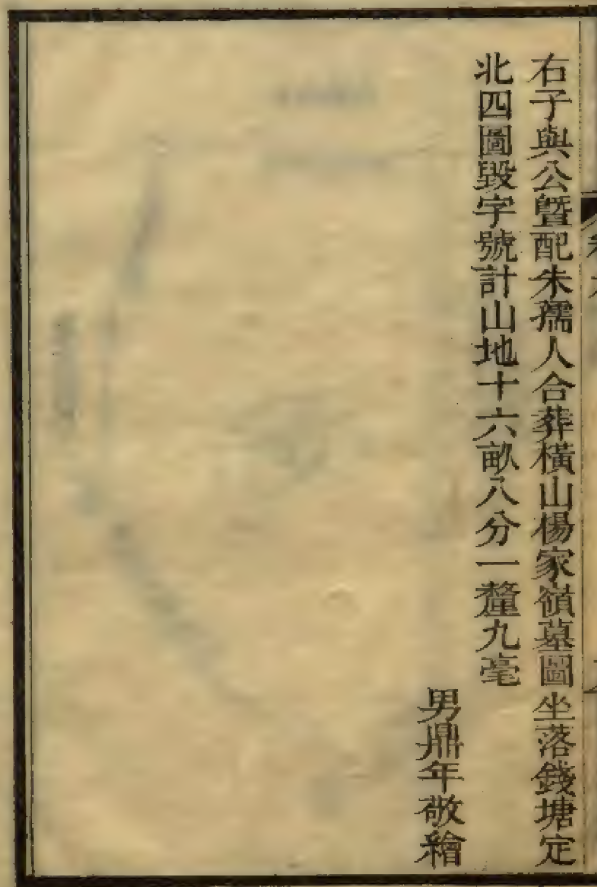 右子與公暨配朱孺人合葬橫山楊家嶺墓圖坐落錢塘定
北四圖毀字號計山地十六畝八分一釐九毫
男鼎年敬繪